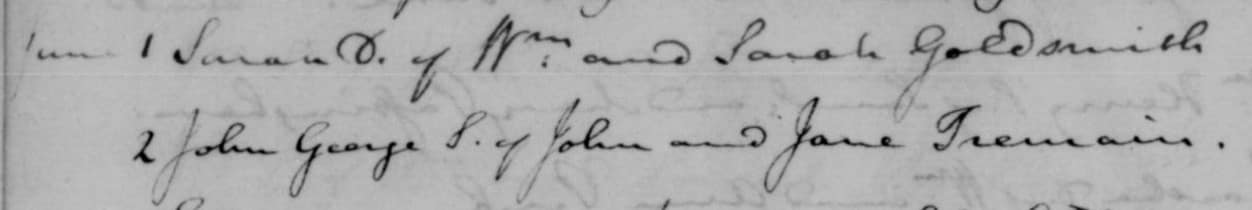 June 1 Sarah D. of Wm. and Sarah Goldsmith
2 John George S. of John and Jane Tremain.